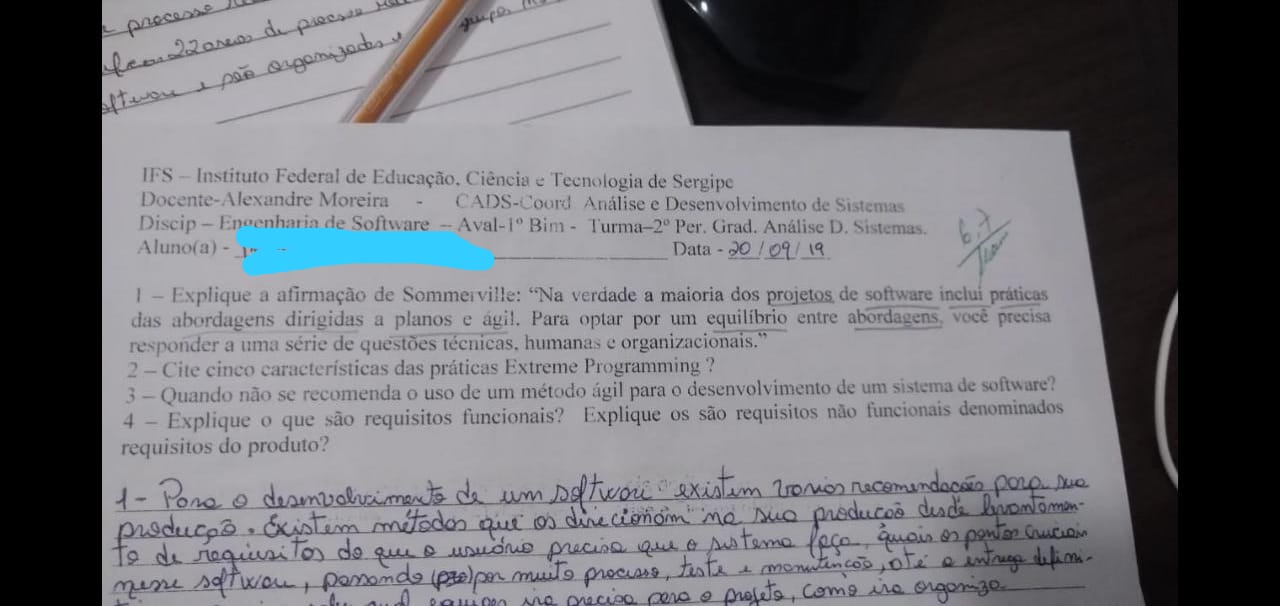 e processo
22 areas de processo
oftwou e são organizados e grupos
IFS – Instituto Federal de Educação, Ciência e Tecnologia de Sergipe
Docente-Alexandre Moreira - CADS-Coord Análise e Desenvolvimento de Sistemas
Discip – Engenharia de Software – Aval-1º Bim - Turma–2º Per. Grad. Análise D. Sistemas.
Aluno(a) - Data - 20/09/19
6.7
1 – Explique a afirmação de Sommerville: “Na verdade a maioria dos projetos de software inclui práticas
das abordagens dirigidas a planos e ágil. Para optar por um equilíbrio entre abordagens, você precisa
responder a uma série de questões técnicas, humanas e organizacionais.”
2 – Cite cinco características das práticas Extreme Programming ?
3 – Quando não se recomenda o uso de um método ágil para o desenvolvimento de um sistema de software?
4 – Explique o que são requisitos funcionais? Explique os são requisitos não funcionais denominados
requisitos do produto?
1- Para o desenvolvimento de um softwou existem varios recomendacão para sua
produção. Existem métodos que os direcionam na sua producão desde levantamen-
to de requisitos do que o usuário precisa que o sistema faça, quais os pontos cruciais
nesse softwou, passando por muito processo, teste e manutencão, até a entrega defini-
equipes ira precisa para o projeto, como ira organiza